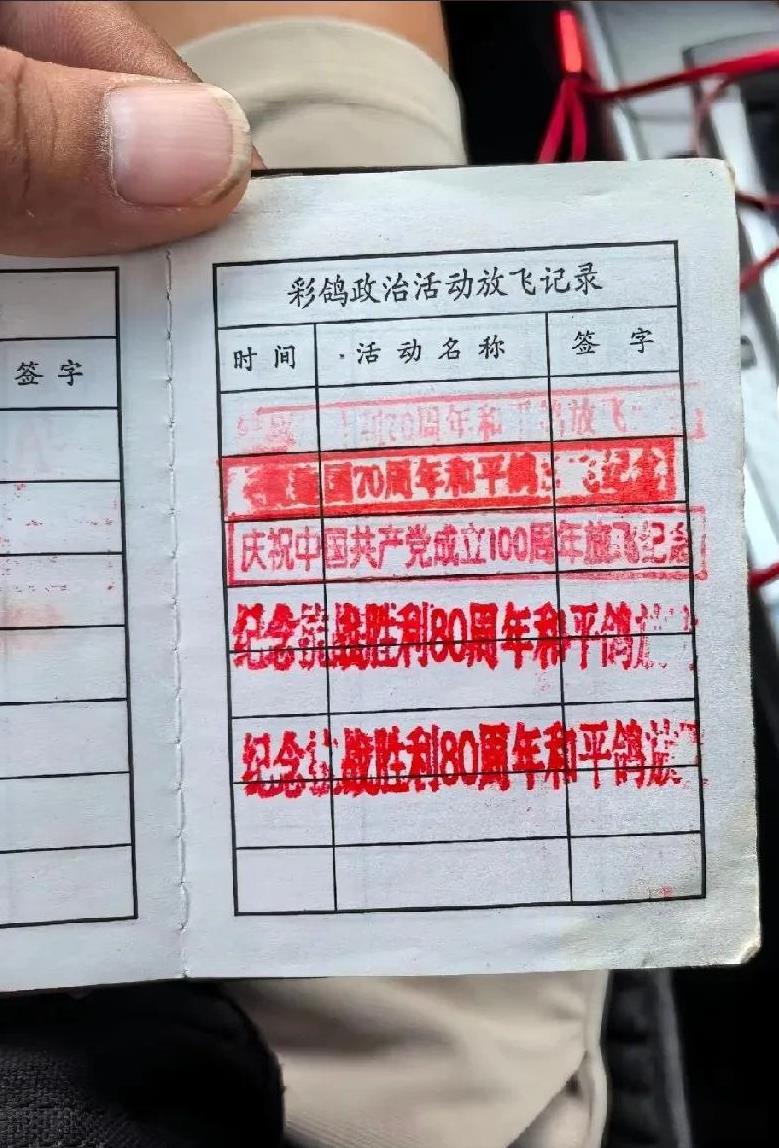 签字
彩鸽政治活动放飞记录
时间 活动名称 签字
70周年和平鸽放飞
国70周年和平鸽 飞纪念
庆祝中国共产党成立100周年放飞纪念
纪念抗战胜利80周年和平鸽放
纪念抗战胜利80周年和平鸽放